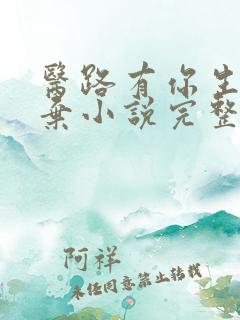 醫路有你生
棄小說完整
阿祥
未經同意禁止轉載